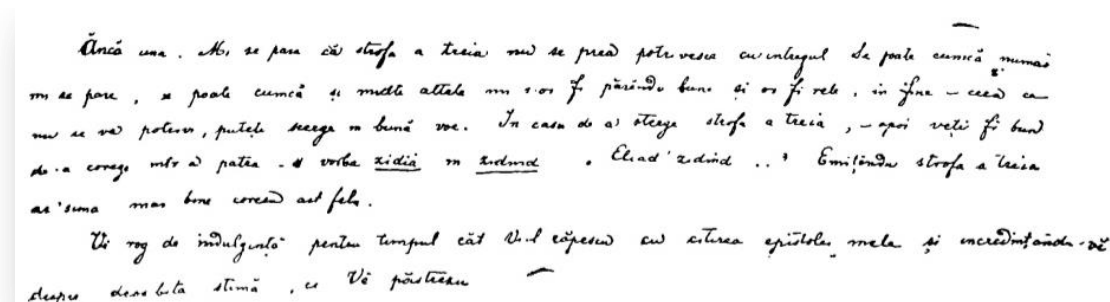 Âncă una. Mi se pare că strofa a treia nu se prea potrivesce cu intregul Se poate cumcă numai
mi se pare, se poate cumcă și multe altele mi s-or fi părêndu bune și or fi rele, in fine – ceea ce
nu se va potrivi, puteți sterge in bună voe. In casu de a sterge strofa a treia, – apoi veți fi bunu
de-a corege intr' a patra - vorba zidia in zidind. Eliad' zidind ..' Emițêndu strofa a treia
ar' suna mai bine coresu ast felu.
Vĕ rog de indulgență pentru timpul cât Vi-l răpescu cu citirea epistolei mele și incredințându-vĕ
despre deosebita stimă, ce Vĕ păstrezu